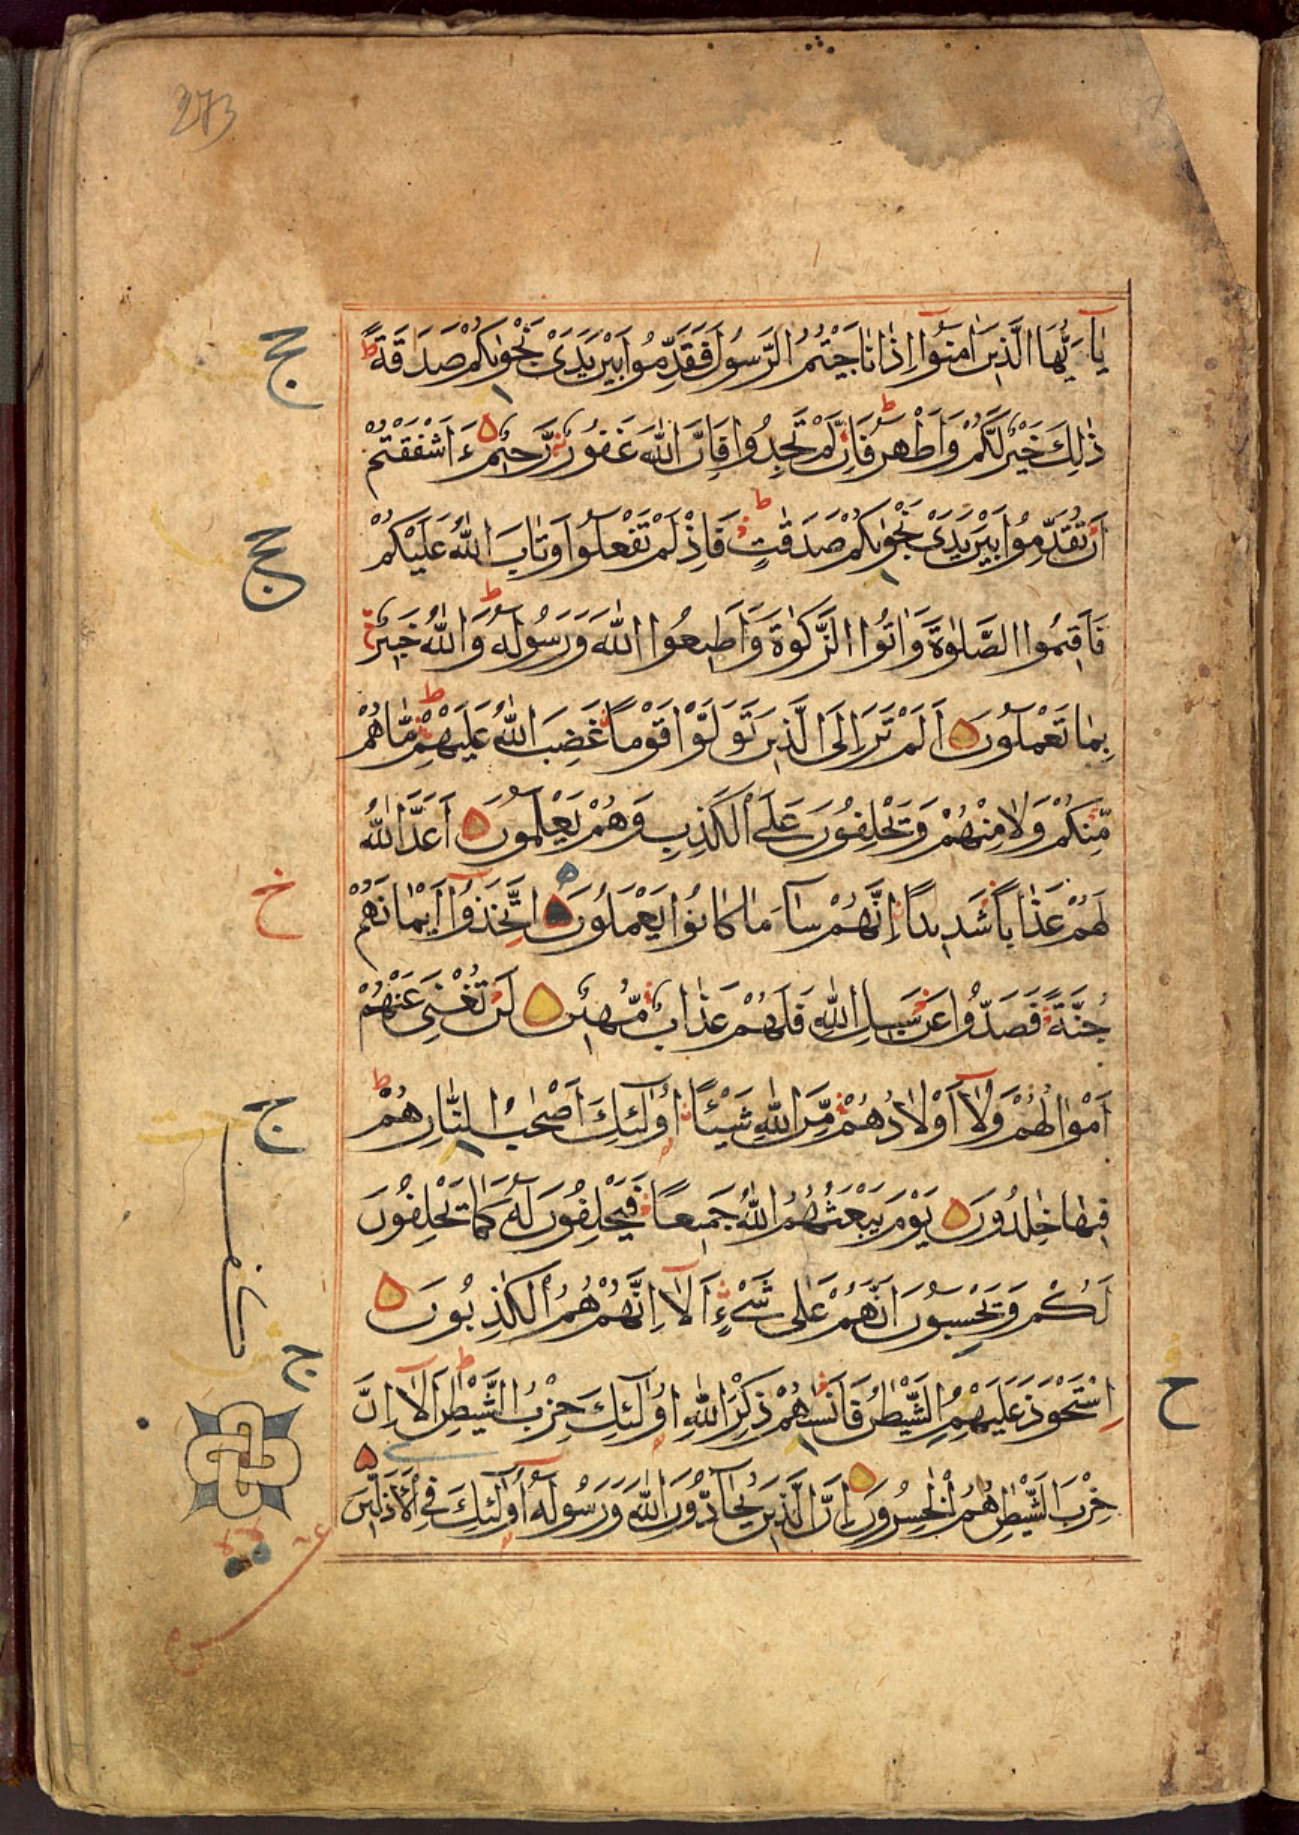 273
يٰٓاَيُّهَا الَّذِيْنَ اٰمَنُوْٓا اِذَا نَاجَيْتُمُ الرَّسُوْلَ فَقَدِّمُوْا بَيْنَ يَدَيْ نَجْوٰىكُمْ صَدَقَةً ط
ذٰلِكَ خَيْرٌ لَّكُمْ وَاَطْهَرُ ط فَاِنْ لَّمْ تَجِدُوْا فَاِنَّ اللّٰهَ غَفُوْرٌ رَّحِيْمٌ ءَاَشْفَقْتُمْ
اَنْ تُقَدِّمُوْا بَيْنَ يَدَيْ نَجْوٰىكُمْ صَدَقٰتٍ ط فَاِذْ لَمْ تَفْعَلُوْا وَتَابَ اللّٰهُ عَلَيْكُمْ
فَاَقِيْمُوا الصَّلٰوةَ وَاٰتُوا الزَّكٰوةَ وَاَطِيْعُوا اللّٰهَ وَرَسُوْلَهٗ ط وَاللّٰهُ خَبِيْرٌ
بِمَا تَعْمَلُوْنَ اَلَمْ تَرَ اِلَى الَّذِيْنَ تَوَلَّوْا قَوْمًا غَضِبَ اللّٰهُ عَلَيْهِمْ ط مَّا هُمْ
مِّنْكُمْ وَلَا مِنْهُمْ وَيَحْلِفُوْنَ عَلَى الْكَذِبِ وَهُمْ يَعْلَمُوْنَ اَعَدَّ اللّٰهُ
لَهُمْ عَذَابًا شَدِيْدًا اِنَّهُمْ سَآءَ مَا كَانُوْا يَعْمَلُوْنَ اِتَّخَذُوْٓا اَيْمَانَهُمْ
جُنَّةً فَصَدُّوْا عَنْ سَبِيْلِ اللّٰهِ فَلَهُمْ عَذَابٌ مُّهِيْنٌ لَنْ تُغْنِيَ عَنْهُمْ
اَمْوَالُهُمْ وَلَآ اَوْلَادُهُمْ مِّنَ اللّٰهِ شَيْئًا اُولٰٓئِكَ اَصْحٰبُ النَّارِ ط هُمْ
فِيْهَا خٰلِدُوْنَ يَوْمَ يَبْعَثُهُمُ اللّٰهُ جَمِيْعًا فَيَحْلِفُوْنَ لَهٗ كَمَا يَحْلِفُوْنَ
لَكُمْ وَيَحْسِبُوْنَ اَنَّهُمْ عَلٰى شَيْءٍ اَلَآ اِنَّهُمْ هُمُ الْكٰذِبُوْنَ
اِسْتَحْوَذَ عَلَيْهِمُ الشَّيْطٰنُ فَاَنْسٰىهُمْ ذِكْرَ اللّٰهِ ط اُولٰٓئِكَ حِزْبُ الشَّيْطٰنِ اَلَآ اِنَّ
حِزْبَ الشَّيْطٰنِ هُمُ الْخٰسِرُوْنَ اِنَّ الَّذِيْنَ يُحَآدُّوْنَ اللّٰهَ وَرَسُوْلَهٗٓ اُولٰٓئِكَ فِي الْاَذَلِّيْنَ